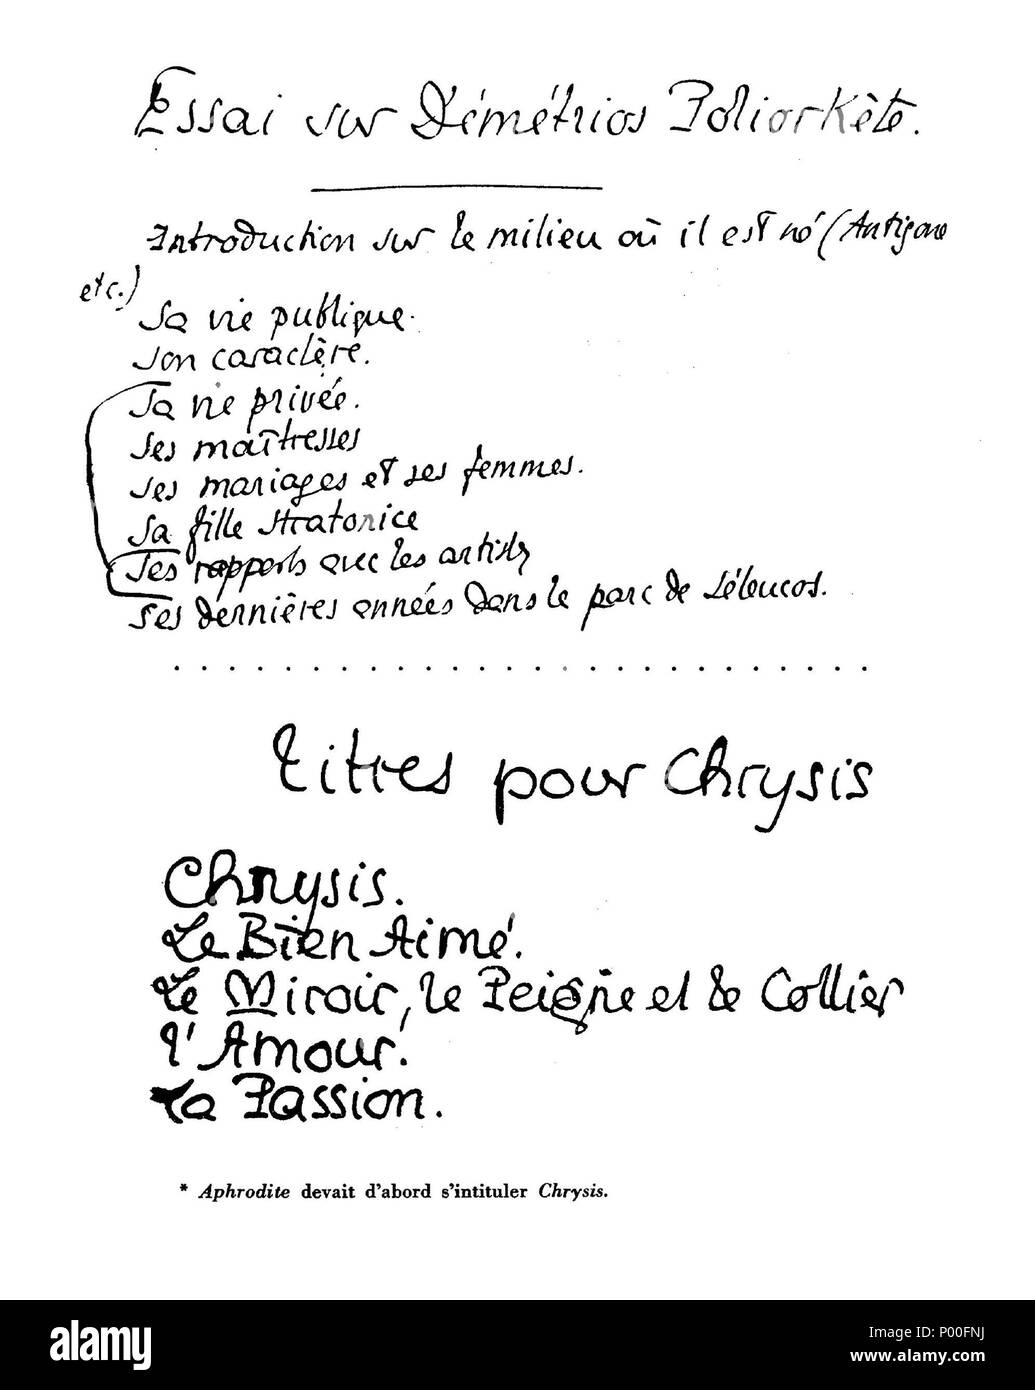 Essai sur Démétrios Poliorkète.
Introduction sur le milieu où il est né (Antigone
etc.)
Sa vie publique.
Son caractère.
Sa vie privée.
Ses maîtresses
Ses mariages et ses femmes.
Sa fille Stratonice
Ses rapports avec les artistes
Ses dernières années dans le parc de Séleucos.
. . . . . . . . . . . . . . . . . . . . . . . . . .
Titres pour Chrysis
Chrysis.
Le Bien Aimé.
Le Miroir, le Peigne et le Collier
l'Amour.
La Passion.
* Aphrodite devait d'abord s'intituler Chrysis.
alamy
Image ID: P00FNJ
www.alamy.com